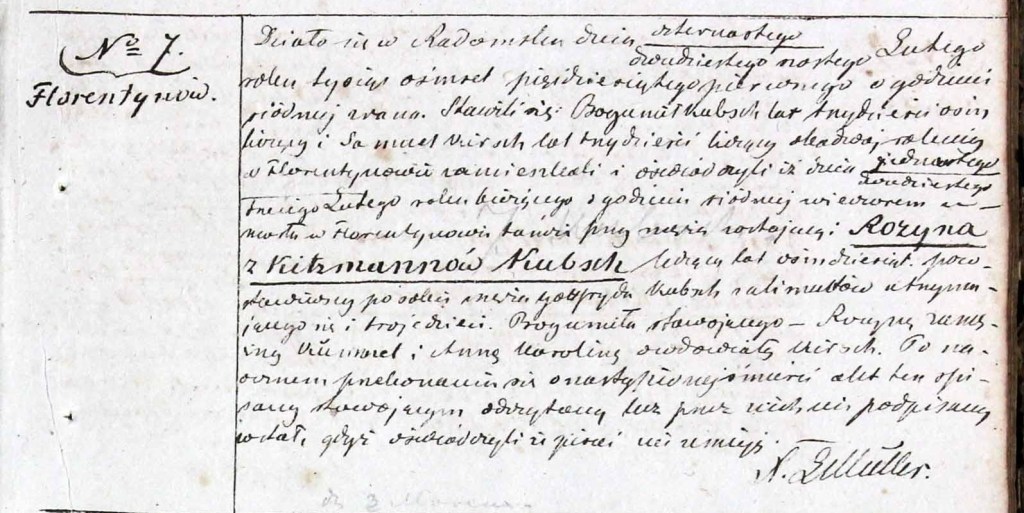 No 7.
Florentynów.
Działo się w Radomsku dnia czternastego
dwudziestego szóstego Lutego
roku tysiąc ośmset pięćdziesiątego pierwszego o godzinie
siódmej zrana. Stawili się Bogumił Kubsch lat trzydzieści ośm
liczący i Samuel Kirsch lat trzydzieści liczący obadwaj rolnicy
w Florentynowie zamieszkali i oświadczyli iż dnia jedenastego
dwudziestego
trzeciego Lutego roku bieżącego o godzinie siódmej wieczorem u-
marła w Florentynowie tamże przy mężu zostająca Rozyna
z Kitzmannów Kubsch licząca lat ośmdziesiąt. pozo-
stawiwszy po sobie męża Gottfryda Kubsch z alimentów utrzymu-
jącego się i troje dzieci. Bogumiła stawającego – Rozynę zamę-
żną Kümmel i Annę Karolinę owdowiałą Kirsch. Po na-
ocznem przekonaniu się o nastąpionej śmierci akt ten opi-
sany stawającym odczytany lecz przez nich nie podpisany
został, gdyż oświadczyli iż pisać nie umieją.